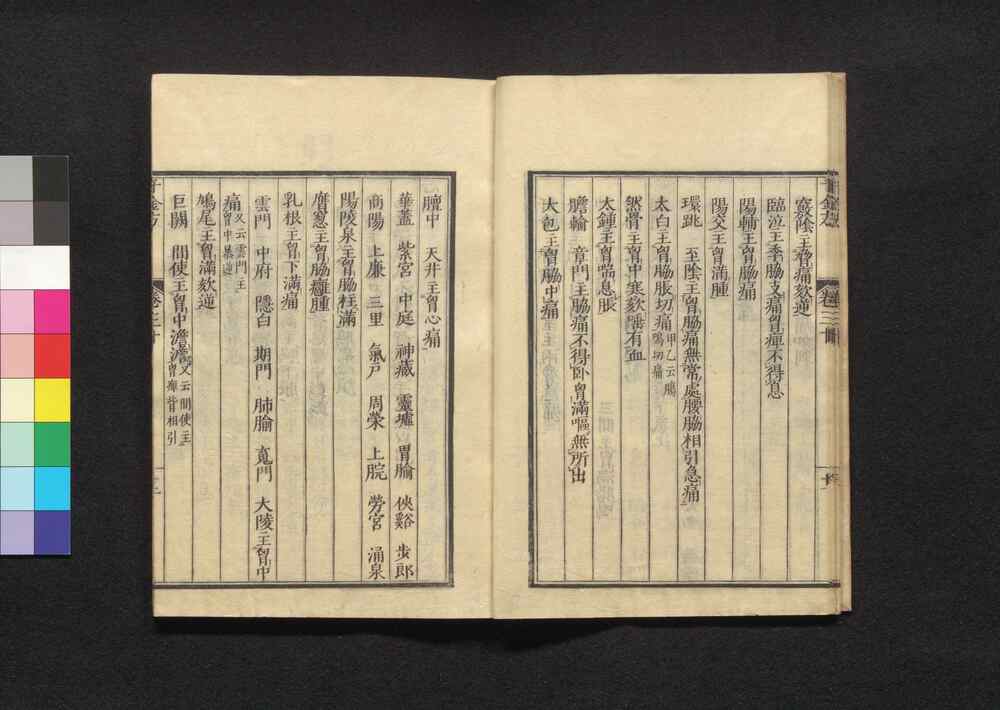 竅陰主脅痛欬逆
臨泣主季脇支痛胷痺不得息
陽輔主胷脇痛
陽交主胷滿腫
環跳 至陰主胷脇痛無常處腰脇相引急痛
太白主胷脇脹切痛甲乙云腸鳴切痛
然骨主胷中寒欬唾有血
大鍾主胷喘息脹
膽輸 章門主脇痛不得臥胷滿嘔無所出
大包主胷脇中痛
膻中 天井主胷心痛
華蓋 紫宮 中庭 神藏 靈墟 胃腧 俠谿 步郎
商陽 上廉 三里 氣戶 周榮 上脘 勞宮 涌泉
陽陵泉主胷脇柱滿
膺窻主胷脇癰腫
乳根主胷下滿痛
雲門 中府 隱白 期門 肺腧 䰟門 大陵主胷中
痛又云雲門主胷中暴逆
鳩尾主胷滿欬逆
巨闕 間使主胷中澹澹又云間使主胷痺背相引
卷三十